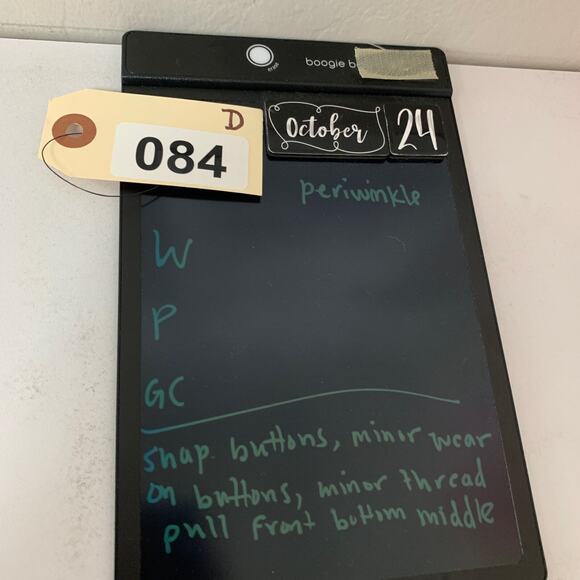 erase
boogie b
D
084
October 24
periwinkle
W
P
GC
snap buttons, minor wear
on buttons, minor thread
pull front bottom middle